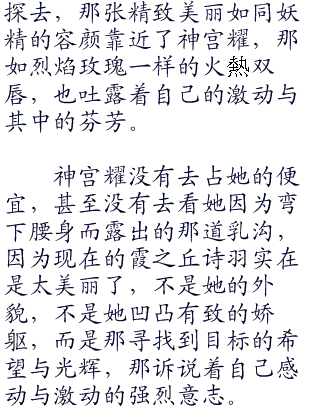 探去，那张精致美丽如同妖
精的容颜靠近了神宫耀，那
如烈焰玫瑰一样的火熱双
唇，也吐露着自己的激动与
其中的芬芳。
神宫耀没有去占她的便
宜，甚至没有去看她因为弯
下腰身而露出的那道乳沟，
因为现在的霞之丘诗羽实在
是太美丽了，不是她的外
貌，不是她凹凸有致的娇
躯，而是那寻找到目标的希
望与光辉，那诉说着自己感
动与激动的强烈意志。